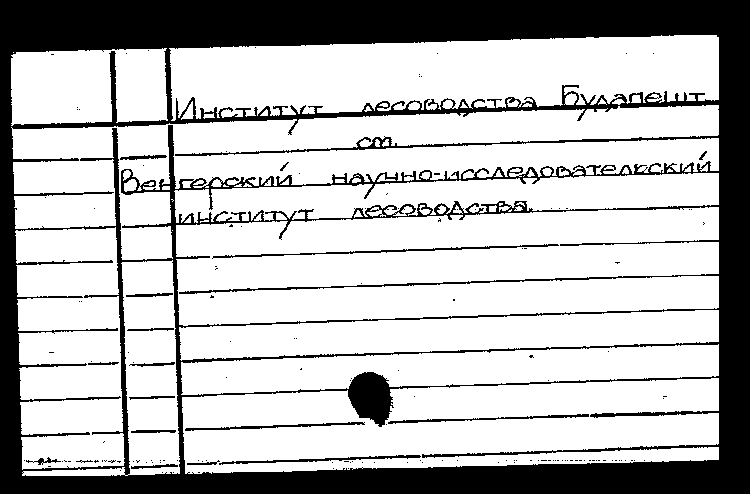 Институт лесоводства Будапешт
см.
Венгерский научно-исследовательский
институт лесоводства.